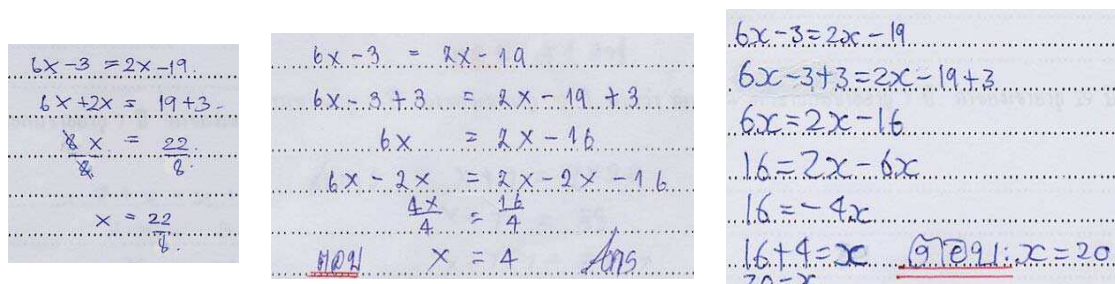 6x-3 = 2x-19.
6x+2x = 19+3-
8x/8 = 22/8.
x = 22/8.
6x-3 = 2x-19
6x-3+3 = 2x-19+3
6x = 2x-16
6x-2x = 2x-2x-16
4x/4 = 16/4
ตอบ x = 4 Ans
6x-3=2x-19
6x-3+3=2x-19+3
6x=2x-16
16=2x-6x
16=-4x
16+4=x ตอบ: x=20
20=x